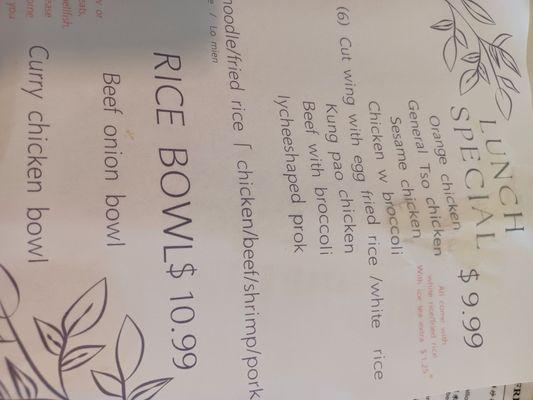 LUNCH
SPECIAL $ 9.99
Orange chicken
General Tso chicken
Sesame chicken
Chicken w broccoli
(6) Cut wing with egg fried rice /white rice
Kung pao chicken
Beef with broccoli
lycheeshaped prok
All come with
white rice/fried rice
With ice tea extra $ 1.25
noodle/fried rice「 chicken/beef/shrimp/pork
/ Lo mien
RICE BOWL$ 10.99
Beef onion bowl
Curry chicken bowl